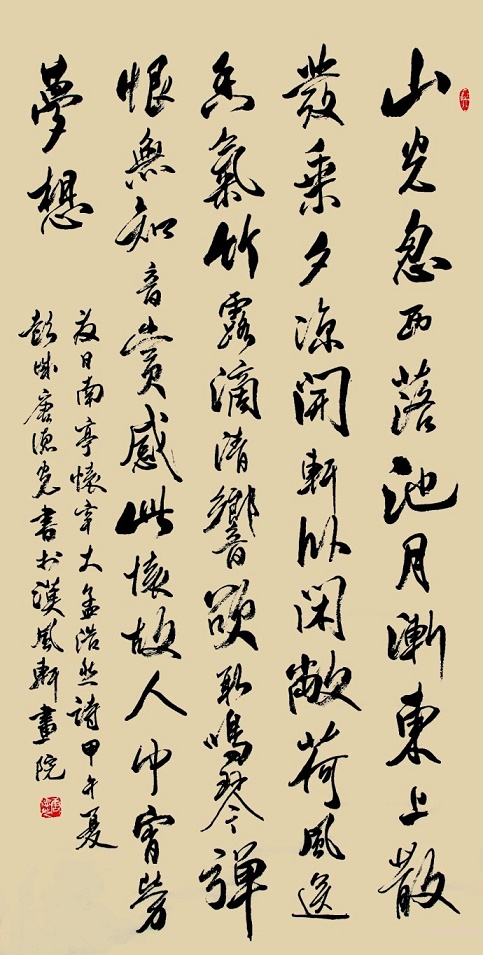 山光忽西落池月漸東上散
發乘夕涼開軒卧閑敞荷風送
香氣竹露滴清響欲取鳴琴彈
恨無知音賞感此懷故人中宵勞
夢想
夏日南亭懷辛大孟浩然詩甲午夏
彭城唐德書於漢風軒畫院